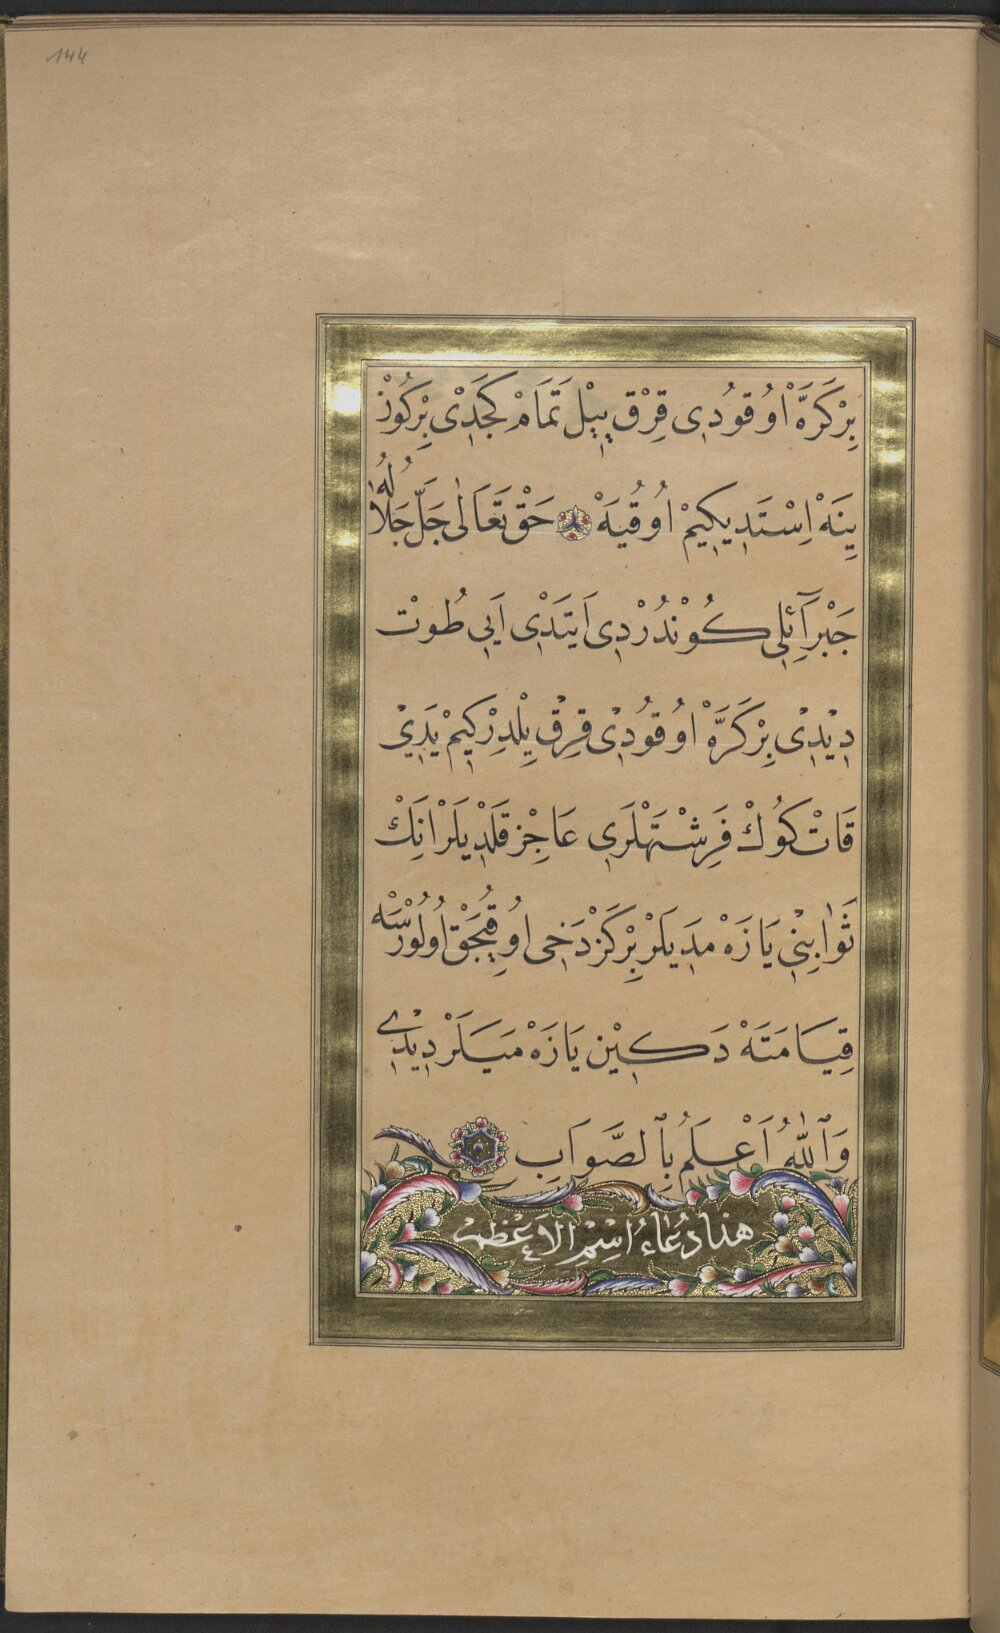 144
بِرْكَرَّهْ اوُقوُدِى قِرْق يِيْل تَمَامْ كَجَدْى بِرْكُوْنْ
يِنَهْ اِسْتَدِيكِيمْ اوُقُيَهْ حَقْ تَعَالٰى جَلَّ جَلَالُهُ
جَبْرَآئِلِى كُوْنْدُرْدِى اَيتَدْى اَيِى طُوتْ
دِيْدِى بِرْكَرَّهْ اوُقوُدِى قِرْق يِلْدِرْكِيمْ يَدِىْ
قَاتْ كُوكْ فَرِشْتَهْلَرِى عَاجِزْ قَلْدِيلَرْ انَكْ
ثَوٰابِنِى يَازَهْ مَدِيلَرْ بِرْكَزْ دَخِى اوُقِيُجَقْ اوُلُوْرْسَهْ
قِيَامَتَهْ دَكِيْن يَازَهْ مَيَلَرْ دِيْدِى
وَٱللّٰهُ اَعْلَمُ بِٱلصَّوَابِ
هذا دُعَاءُ اِسْمِ الاَعْظَمْ